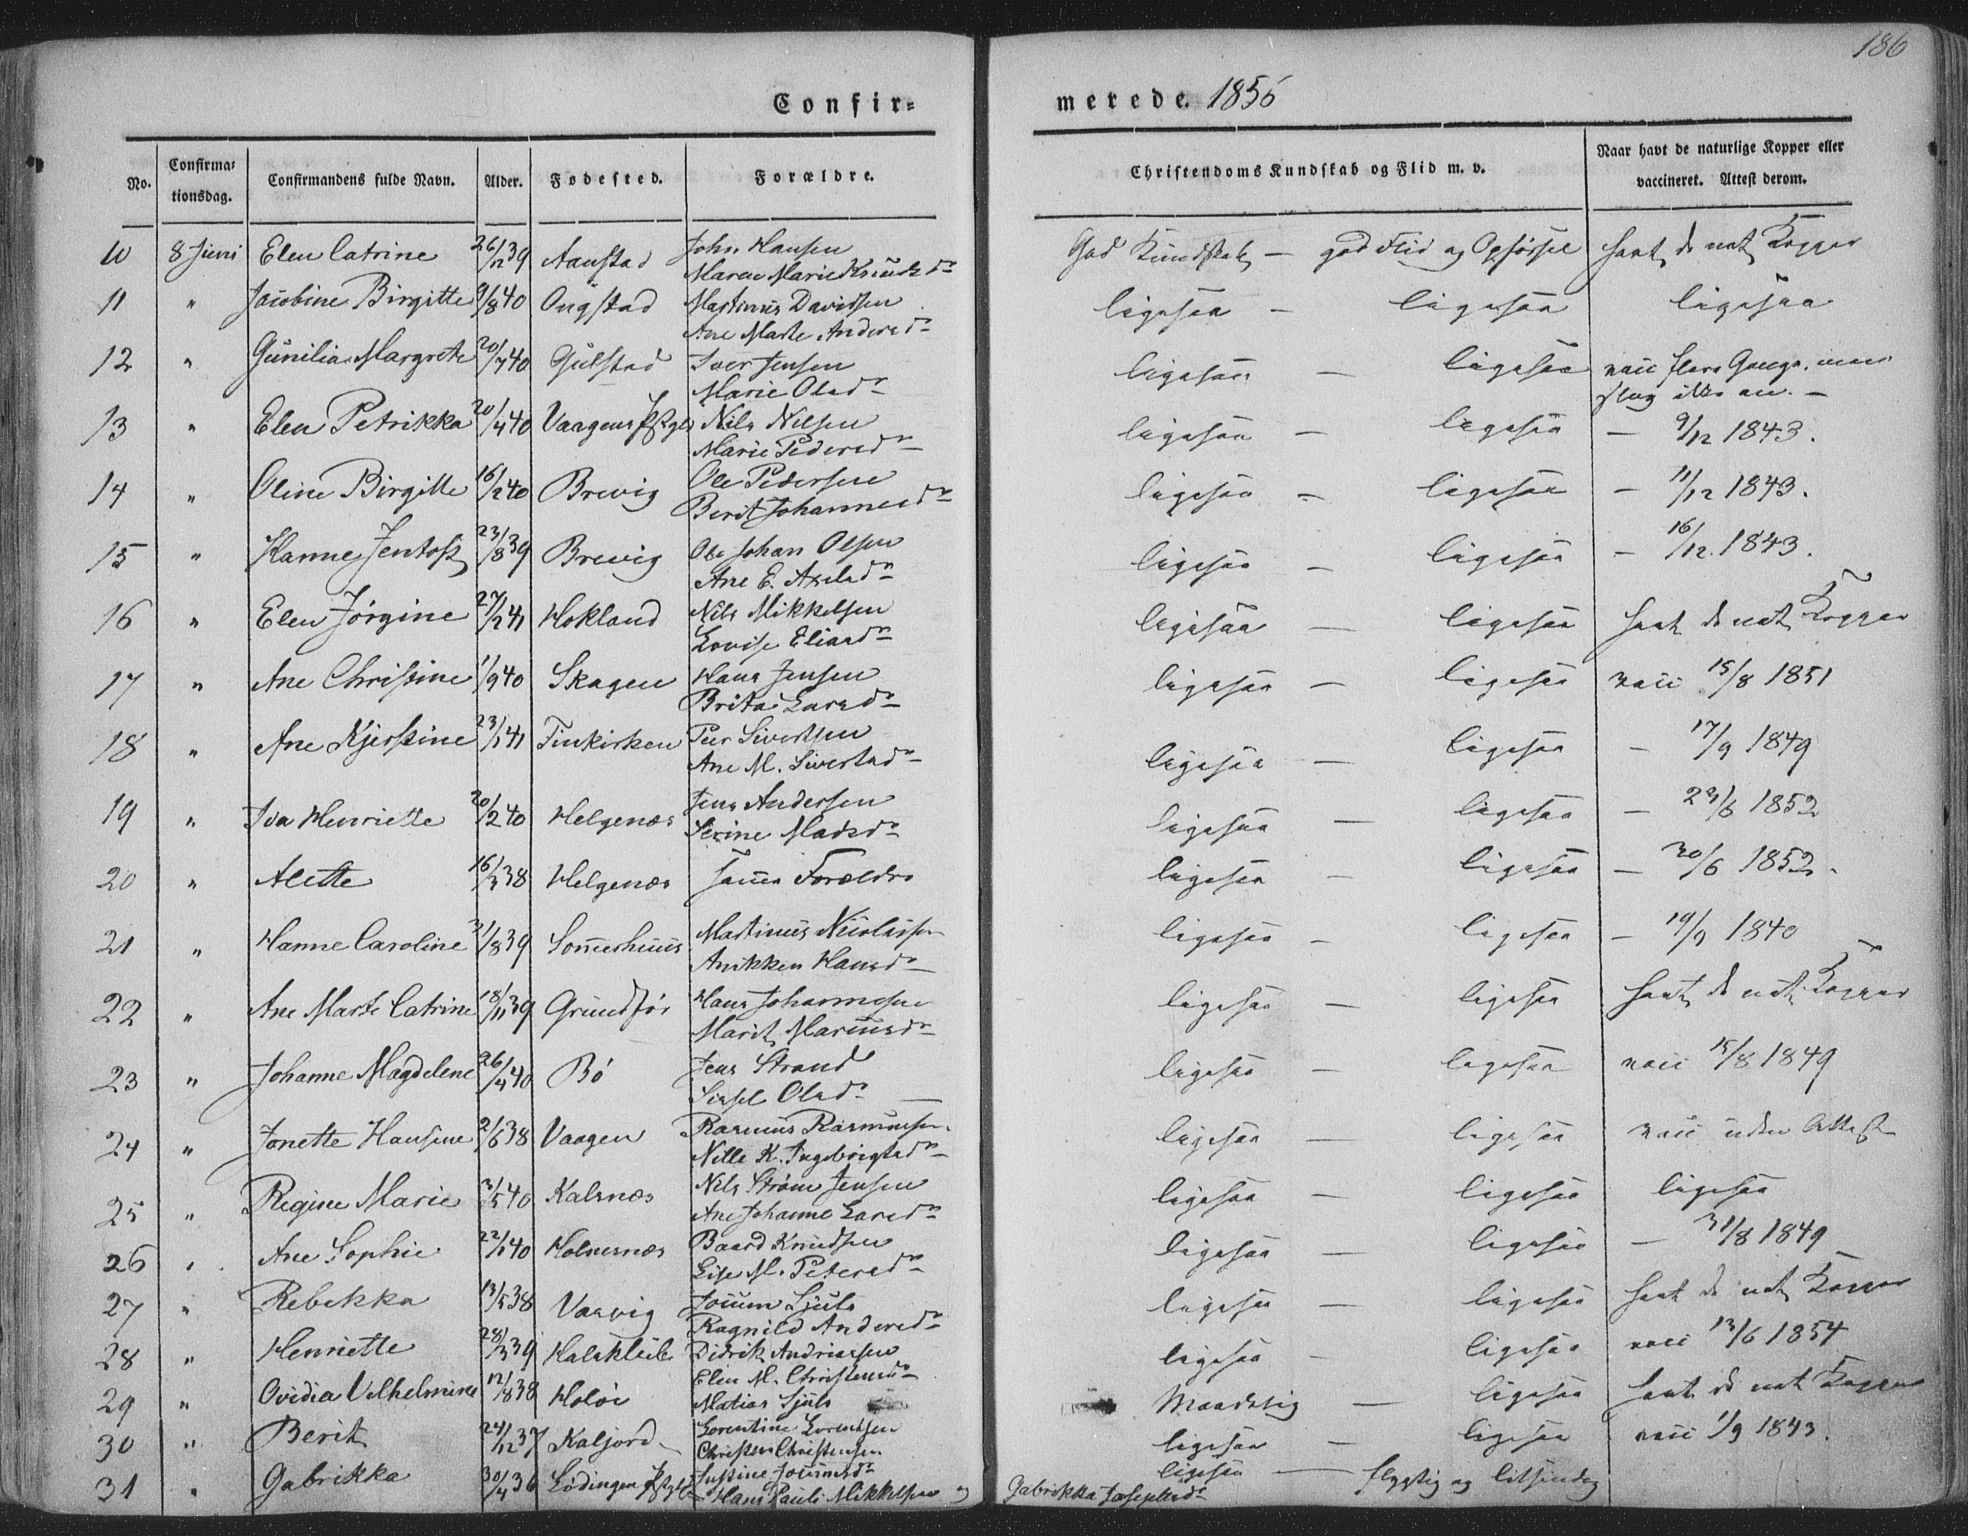 186
Confir-
merede. 1856
No.
Confirma-
tionsdag.
Confirmandens fulde Navn.
Alder.
Fødested.
Forældre.
Christendoms Kundskab og Flid m. v.
Naar havt de naturlige Kopper eller
vaccineret. Attest derom.
10 8 Juni Elen Catrine 26/12 39 Aanstad John Hansen God Kundskab — god Flid og Opførsel havt de nat Kopper
Maren Marie Knudsdr
11 " Jacobine Birgitte 9/8 40 Ongstad Martinus Davidsen ligesaa — ligesaa ligesaa
Ane Marte Andersdr
12 " Gunilia Margrete 20/7 40 Gulstad Iver Jensen ligesaa — ligesaa vacc flere Gange, men
Marie Olsdr slog ikke an. —
13 " Elen Petrikka 20/4 40 Vaagens Pstgld Nils Nilsen ligesaa — ligesaa — 9/12 1843.
Marie Pedersdr
14 " Oline Birgitte 16/2 40 Brevig Ole Pedersen ligesaa — ligesaa — 11/12 1843.
Berit Johannesdr
15 " Hanne Jentoft 23/8 39 Brevig Ole Johan Olsen ligesaa ligesaa — 16/12 1843.
Ane E. Axelsdr
16 " Elen Jørgine 27/2 41 Hokland Nils Mikkelsen ligesaa — ligesaa havt de nat Kopper
Lovise Eliasdr
17 " Ane Christine 11/9 40 Skagen Hans Jensen ligesaa — ligesaa vacc 15/8 1851
Brita Larsdr
18 " Ane Kjerstine 23/1 41 Finkirken Peer Sivertsen ligesaa — ligesaa — 17/9 1849
Ane M. Sivertsdr
19 " Iva Henriette 20/2 40 Helgenæs Jens Andersen ligesaa — ligesaa — 23/6 1852
Serine Madsdr
20 " Alette 16/3 38 Helgenæs samme Forældre ligesaa — ligesaa — 30/6 1852.
21 " Hanne Caroline 31/8 39 Sommerhuus Martinus Nicolaisen ligesaa — ligesaa — 19/9 1840
Anikken Hansdr
22 " Ane Marte Catrine 18/11 39 Grundfør Hans Johannesen ligesaa — ligesaa havt de nat Kopper
Marit Mariusdr
23 " Johanne Magdelene 26/4 40 Bø Jens Strand ligesaa — ligesaa vacc 15/8 1849
Sirsel Olsdr
24 " Jonette Hansine 2/6 38 Vaagen Rasmus Rasmussen ligesaa — ligesaa vacc uden Attest
Nille K. Ingebrigtsdr
25 " Regine Marie 3/5 40 Kalsnæs Nils Strøm Jensen ligesaa — ligesaa ligesaa
Ane Johanne Larsdr
26 " Ane Sophie 22/1 40 Holmsnæs Baard Knudsen ligesaa — ligesaa — 31/8 1849
Lise M. Petersdr
27 " Rebekka 13/5 38 Vaavig Joeum Sjuls ligesaa — ligesaa havt de nat Kopper
Ragnild Andersdr
28 " Henriette 28/3 39 Halskleib Didrik Andriassen ligesaa — ligesaa vacc 13/6 1854
Elen M. Christensdr
29 " Ovidia Vilhelmine 12/8 38 Holøe Matias Sjuls Maadelig — ligesaa havt de nat Kopper
Lorentine Lorentsen
30 " Berit 24/12 37 Kaljord Christen Christensen ligesaa — ligesaa vacc 1/9 1843.
Justine Joeumsdr
31 " Gabrikka 30/4 36 Lødingen Pstgld Hans Pauli Mikkelsen og Gabrikka Josephsdr ligesaa — flygtig og letsindig